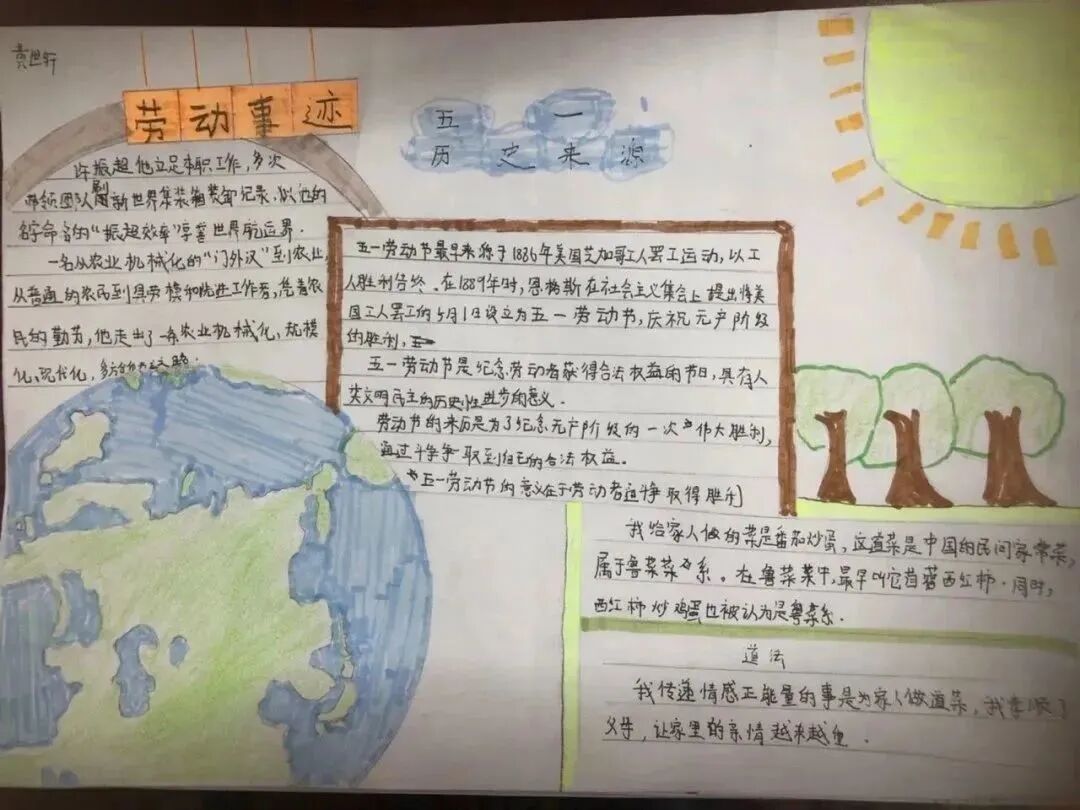 袁世轩
劳动事迹
许振超他立足本职工作，多次
带领团队刷新世界集装箱装卸记录，以他的
名字命名的“振超效率”享誉世界航运界．
一名从农业机械化的“门外汉”到农业，
从普通的农民到具劳模和先进工作者，凭着农
民的勤劳，他走出了一条农业机械化，规模
化，现代化，
五一
历史来源
五一劳动节最早来源于1886年美国芝加哥工人罢工运动，以工
人胜利告终．在1889年时，恩格斯在社会主义集会上提出将美
国工人罢工的5月1日设立为五一劳动节，庆祝无产阶级
的胜利，
五一劳动节是纪念劳动者获得合法权益的节日，具有人
类文明民主的历史性进步的意义．
劳动节的来历是为了纪念无产阶级的一次伟大胜利，
通过斗争争取到自己的合法权益。
五一劳动节的意义在于劳动者通争取得胜利
我给家人做的菜是番茄炒蛋，这道菜是中国的民间家常菜，
属于鲁菜菜系。在鲁菜菜中，最早叫它苜蓿西红柿．同时，
西红柿炒鸡蛋也被认为是粤菜系．
道法
我传递情感正能量的事是为家人做道菜，我孝顺了
父母，让家里的亲情越来越